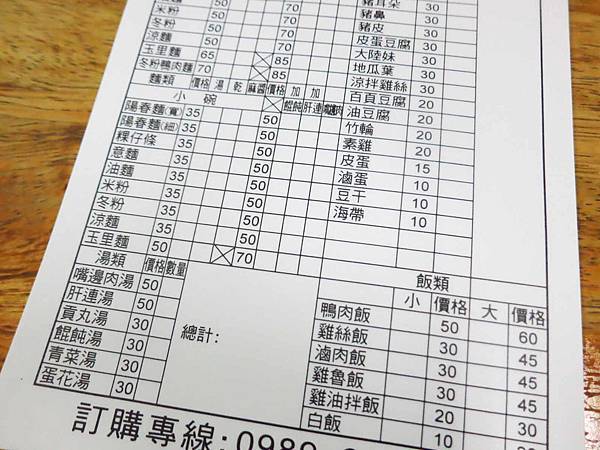 米粉 50 70
冬粉 50 70
涼麵 50 70
玉里麵 65 85
冬粉鴨肉麵 70 85
麵類 價格 湯 乾 麻醬 價格 加餛飩 加肝連
小碗
陽春麵(寬) 35 50
陽春麵(細) 35 50
粿仔條 35 50
意麵 35 50
油麵 35 50
米粉 35 50
冬粉 35 50
涼麵 35 50
玉里麵 50 70
湯類 價格 數量
嘴邊肉湯 50
肝連湯 50
貢丸湯 30
餛飩湯 30
青菜湯 30
蛋花湯 30
總計:
豬耳朵 30
豬鼻 30
豬皮 30
皮蛋豆腐 30
大陸妹 30
地瓜葉 30
涼拌雞絲 30
百頁豆腐 20
油豆腐 20
竹輪 20
素雞 20
皮蛋 15
滷蛋 10
豆干 10
海帶 10
飯類
小 價格 大 價格
鴨肉飯 50 60
雞絲飯 30 45
滷肉飯 30 45
雞魯飯 30 45
雞油拌飯 20 30
白飯 10
訂購專線:0989